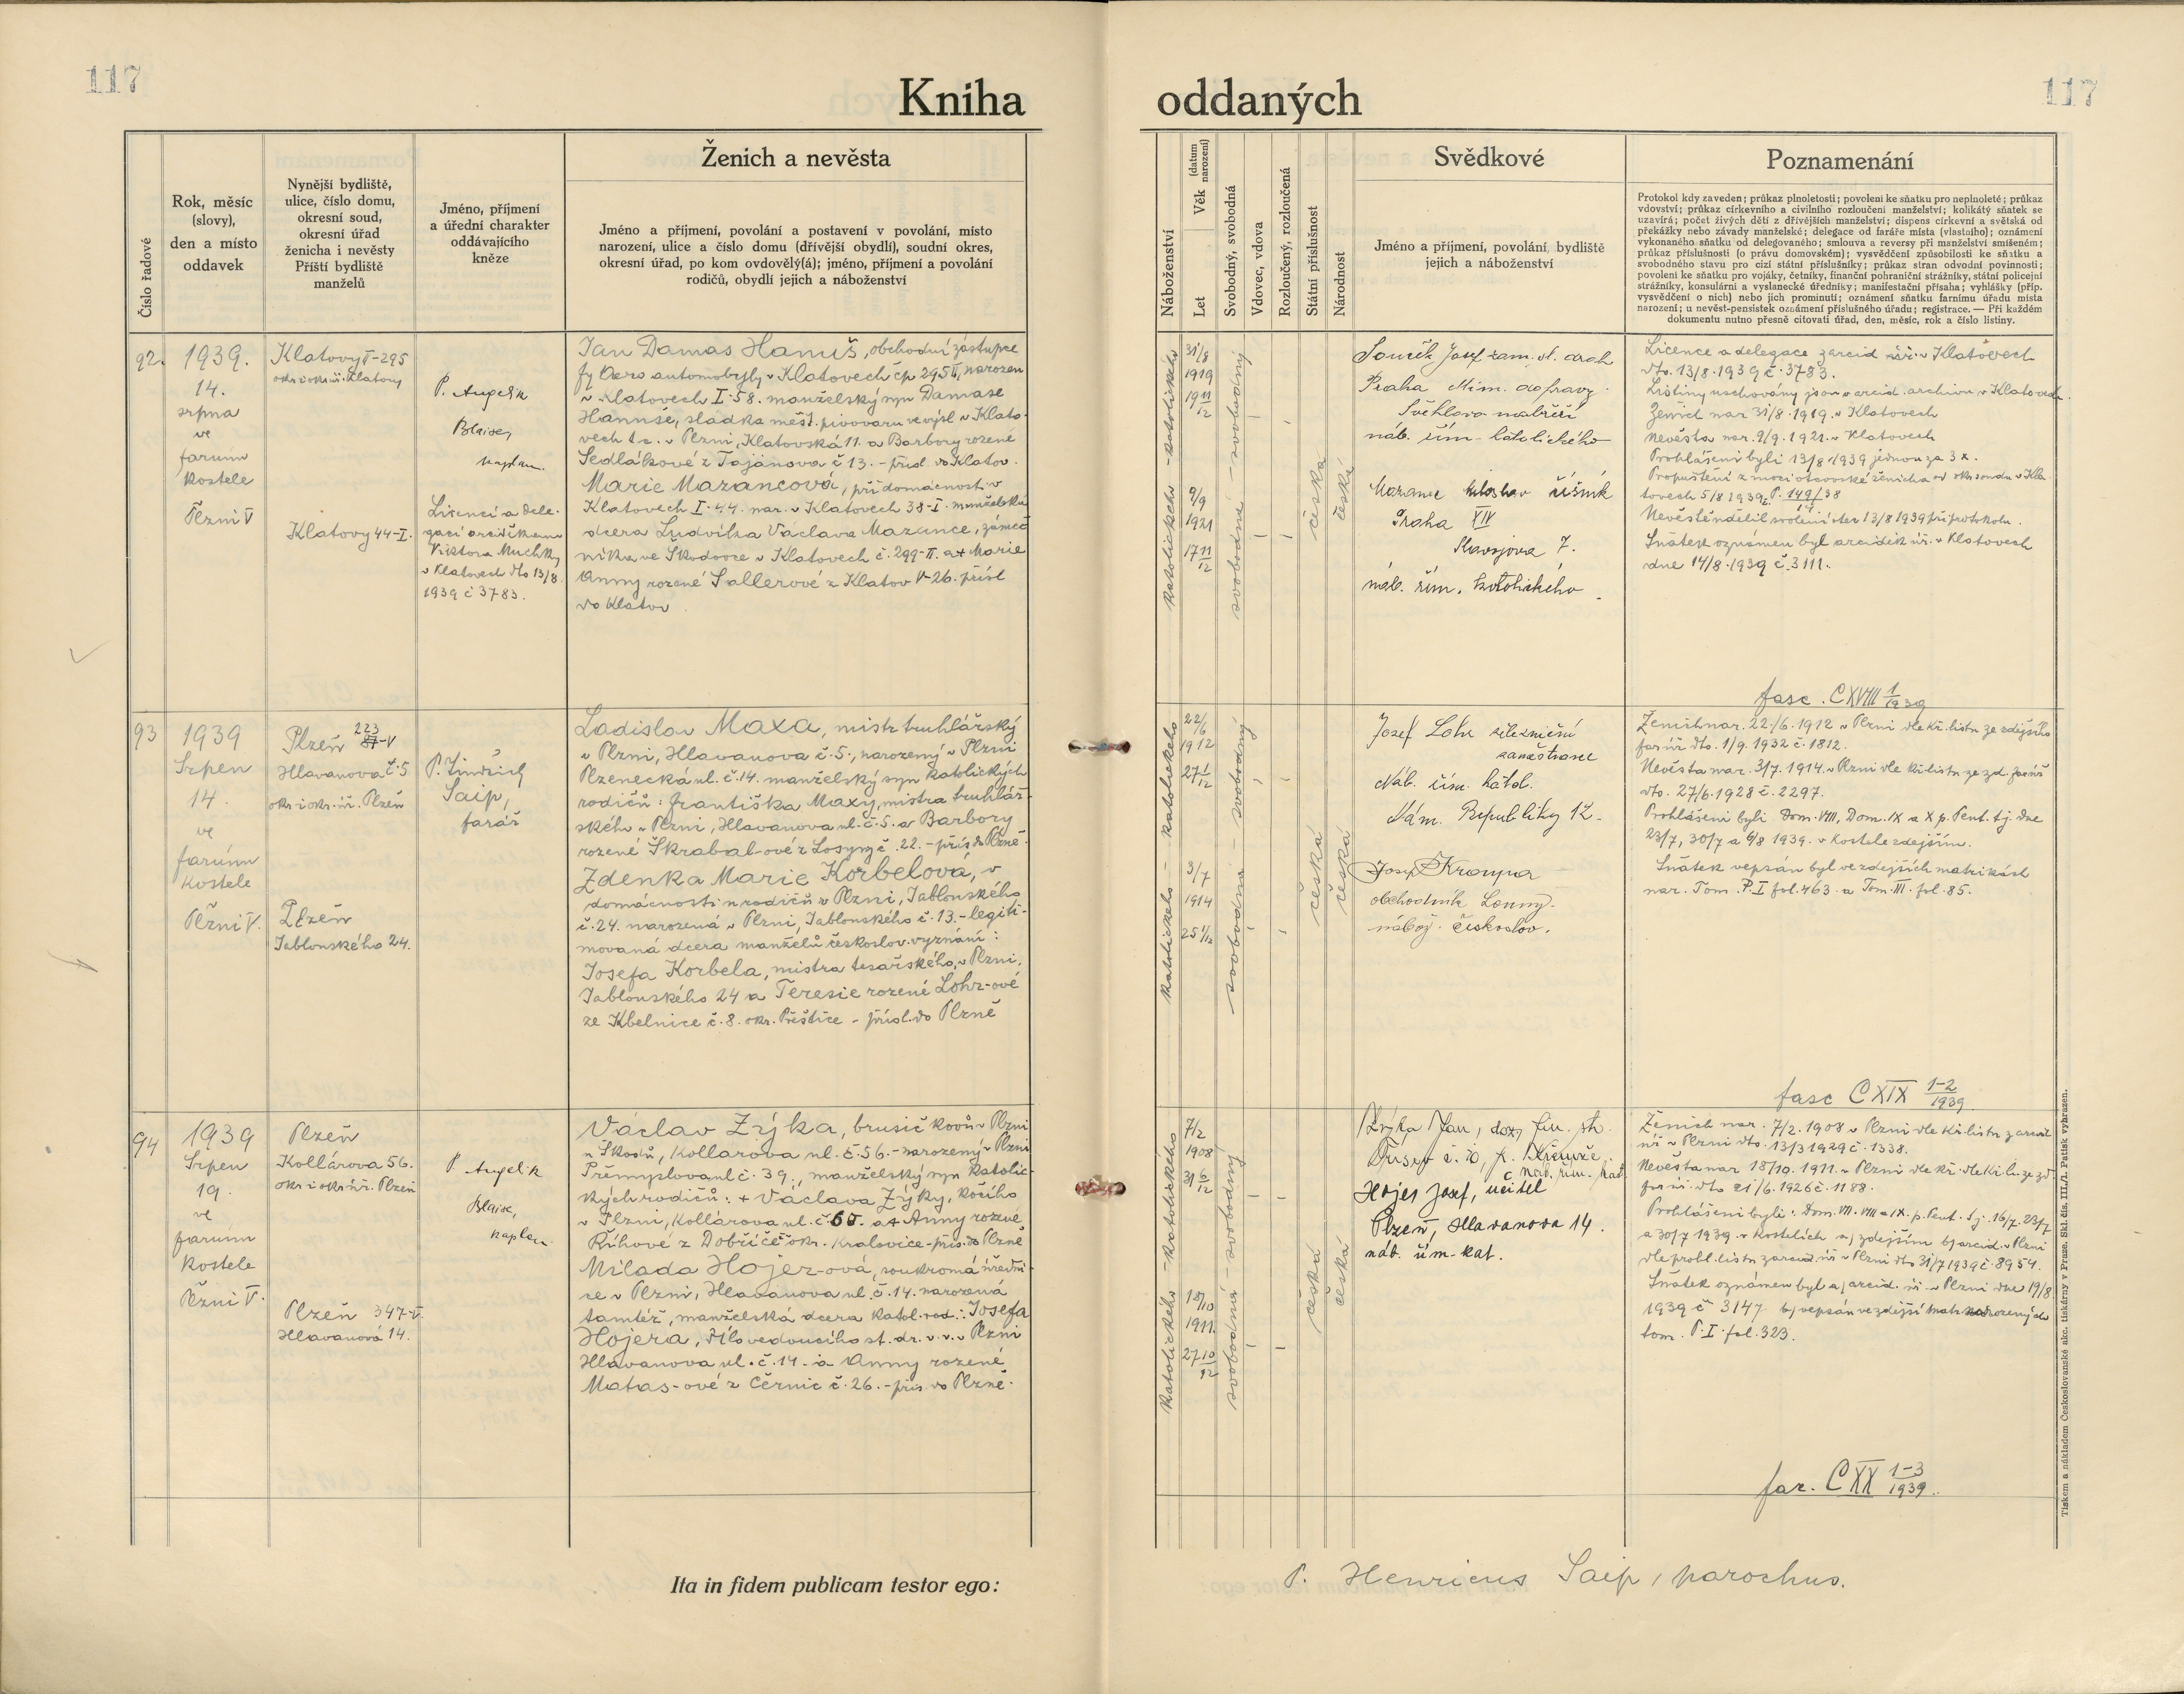 117
117
Kniha
oddaných
Číslo řadové
Rok, měsíc
(slovy),
den a místo
oddavek
Nynější bydliště,
ulice, číslo domu,
okresní soud,
okresní úřad
ženicha i nevěsty
Příští bydliště
manželů
Jméno, příjmení
a úřední charakter
oddávajícího
kněze
Ženich a nevěsta
Jméno a příjmení, povolání a postavení v povolání, místo
narození, ulice a číslo domu (dřívější obydlí), soudní okres,
okresní úřad, po kom ovdověl​ý(á); jméno, příjmení a povolání
rodičů, obydlí jejich a náboženství
Náboženství
Let
Věk (datum narození)
Svobodný, svobodná
Vdovec, vdova
Rozloučený, rozloučená
Státní příslušnost
Národnost
Svědkové
Jméno a příjmení, povolání, bydliště
jejich a náboženství
Poznamenání
Protokol kdy zaveden; průkaz plnoletosti; povolení ke sňatku pro neplnoleté; průkaz
vdovství; průkaz církevního a civilního rozloučení manželství; kolikátý sňatek se
uzavírá; počet živých dětí z dřívějších manželství; dispens církevní a světská od
překážky nebo závady manželské; delegace od faráře místa (vlastního); oznámení
vykonaného sňatku od delegovaného; smlouva a reversy při manželství smíšeném;
průkaz příslušnosti (o právu domovském); vysvědčení způsobilosti ke sňatku a
svobodného stavu pro cizí státní příslušníky; průkaz stran odvodní povinnosti;
povolení ke sňatku pro vojáky, četníky, finanční pohraniční strážníky, státní policejní
strážníky, konsulární a vyslanecké úředníky; manifestační přísaha; vyhlášky (příp.
vysvědčení o nich) nebo jich prominutí; oznámení sňatku farnímu úřadu místa
narození; u nevěst-pensistek oznámení příslušného úřadu; registrace. — Při každém
dokumentu nutno přesně citovati úřad, den, měsíc, rok a číslo listiny.
92.
1939.
14.
srpna
ve
farním
kostele
Plzni V
Klatovy I-295
okr i okr. ú. Klatovy
Klatovy 44-I.
P. Angelik
Blaise,
kaplan.
Licencí a dele-
gací arciděkana
Viktora Muchky
v Klatovech dto 13/8
1939 č 3783.
Jan Damas Hanuš, obchodní zástupce
fy Aero automobyly v Klatovech čp 295 II, narozen
v Klatovech I-58. manželský syn Damase
Hanuše, sládka měšť. pivovaru ve výsl v Klato-
vech t. č. v Plzni, Klatovská 11. a Barbory rozené
Sedlákové z Tajanova č 13. - přísl. do Klatov.
Marie Mazancová, při domácnosti v
Klatovech I-44. nar. v Klatovech 38-I. manželská
dcera Ludvíka Václava Mazance, zámeč
níka ve Škodovce v Klatovech č. 299-II. a + Marie
Anny rozené Sallerové z Klatov V-26. přísl
do Klatov
katolického - katolického
31/8
1919
19 11/12
9/9
1921
17 11/12
svobodná - svobodný
česká
česká
Souček Josef
Praha Min. dopravy
Švehlovo nábřeží
náb. řím - katolického
Mazanec Miloslav řezník
Praha XIV
7.
náb. řím. katolického
Licence a delegace zarcid úř. v Klatovech
dto. 13/8. 1939 č. 3783.
Listiny uschovány jsou v arcid. archivu v Klatovech.
Ženich nar 31/8. 1919. v Klatovech
nevěsta nar. 9/9. 1921. v Klatovech
Prohlášeni byli 13/8 1939 jednou za 3 x.
Propuštění z moci otcovské ženicha od okr. soudu v Kla
tovech 5/8 1939 P. 149/38
Nevěstě udělil svolení otec 13/8 1939 při protokolu.
Sňatek oznámen byl arciděk úř. v Klatovech
dne 14/8. 1939 č. 3111.
fasc. CXVIII 1/1939
93
1939
Srpen
14.
ve
farním
kostele
Plzni V.
Plzeň 223 87-V
Hlavanova č. 5
okr. i okr. úř. Plzeň
Plzeň
Jablonského 24.
P. Jindřich
Saip,
farář
Ladislav Maxa, mistr truhlářský
v Plzni, Hlavanova č. 5., narozený v Plzni
Plzenecká ul. č. 14. manželský syn katolických
rodičů: Františka Maxy, mistra truhlář-
ského v Plzni, Hlavanova ul. č. 5. a Barbory
rozené Škrabal-ové z Losyny č. 22. - přís. do Plzně.
Zdenka Marie Korbelová, v
domácnosti u rodičů v Plzni, Jablonského
č. 24. narozená v Plzni, Jablonského č. 13. - legiti-
movaná dcera manželů českoslov. vyznání:
Josefa Korbela, mistra tesařského, v Plzni,
Jablonského 24 a Teresie rozené Lohr-ové
ze Kbelnice č. 8. okr. Přeštice - přísl. do Plzně
katolického - katolického
22/6
1912
27 1/12
3/7
1914
25 1/12
svobodná - svobodný
česká
česká
Josef Lohr železniční
zaměstnanec
Náb. řím. katol.
Nám. Republiky 12.
Josef Kroupa
obchodník Louny.
nábož. českoslov.
Ženich nar. 22./6. 1912 v Plzni dle kř. listu ze zdejšího
far. úř. dto. 1/9. 1932 č. 1812.
Nevěsta nar. 3/7. 1914. v Plzni dle kř. listu ze zd. far. úř
dto. 27/6. 1928 č. 2297.
Prohlášeni byli Dom. VIII, Dom. IX a X p. Pent. t. j. dne
23/7, 30/7 a 6/8 1939. v kostele zdejším.
Sňatek vepsán byl ve zdejších matrikách
nar. Tom. P. I fol. 463. a Tom. III. fol. 85.
fasc CXIX 1-2/1939
94
1939
Srpen
19.
ve
farním
kostele
Plzni V.
Plzeň
Kollárova 56.
okr. i okr. úř. Plzeň
Plzeň 347-V.
Hlavanová 14.
P. Angelik
Blaise,
kaplan.
Václav Zýka, brusič kovů v Plzni
u Škodů, Kollárova ul. č. 56. - narozený v Plzni
Přemyslova ul č. 39., manželský syn katolic
kých rodičů: + Václava Zýky, kočího
v Plzni, Kollárova ul. č. a + Anny rozené
Říhové z Dobříče okr. Kralovice - přís. do Plzně
Milada Hojer-ová, soukromá úředni-
ce v Plzni, Hlavanova ul. č. 14. narozená
tamtéž, manželská dcera katol. rod.: Josefa
Hojera, dílovedoucího st. dr. v. v. v Plzni
Hlavanova ul. č. 14. a Anny rozené
Matas-ové z Černic č. 26. - přís. do Plzně.
katolického - katolického
7/2
1908
31 6/12
18/10
1911.
27 10/12
svobodná - svobodný
česká
česká
Zýka Jan, doz. fin. str.
č. 10, p. Křemže.
náb. řím. kat.
Hojer Josef, učitel
Plzeň, Hlavanova 14.
náb. řím-kat.
Ženich nar. 7/2. 1908 v Plzni dle kř. listu z arcid
úř. v Plzni dto. 13/3 1929 č. 1338.
Nevěsta nar 18/10. 1911. v Plzni dle kř. dle kř. li. ze zd
far. úř. dto 21/6. 1926 č. 1188.
Prohlášeni byli: Dom. VII. VIII a IX. p. Pent. t. j. 16/7. 23/7
a 30/7 1939. v kostelích a) zdejším b) arcid. v Plzni
dle prohl. listu z arcid. úř. v Plzni dto 31/7 1939 č. 8954.
Sňatek oznámen byl a) arcid. úř. v Plzni dne 19/8
1939 č 3147 b) vepsán ve zdejší matr. narozených
tom. P. I. fol. 323.
far. CXX 1-3/1939.
Ita in fidem publicam testor ego:
P. Henricus Saip, parochus.
Tiskem a nákladem Českoslovanské akc. tiskárny v Praze. Skl. čís. III./1. Patisk vyhrazen.